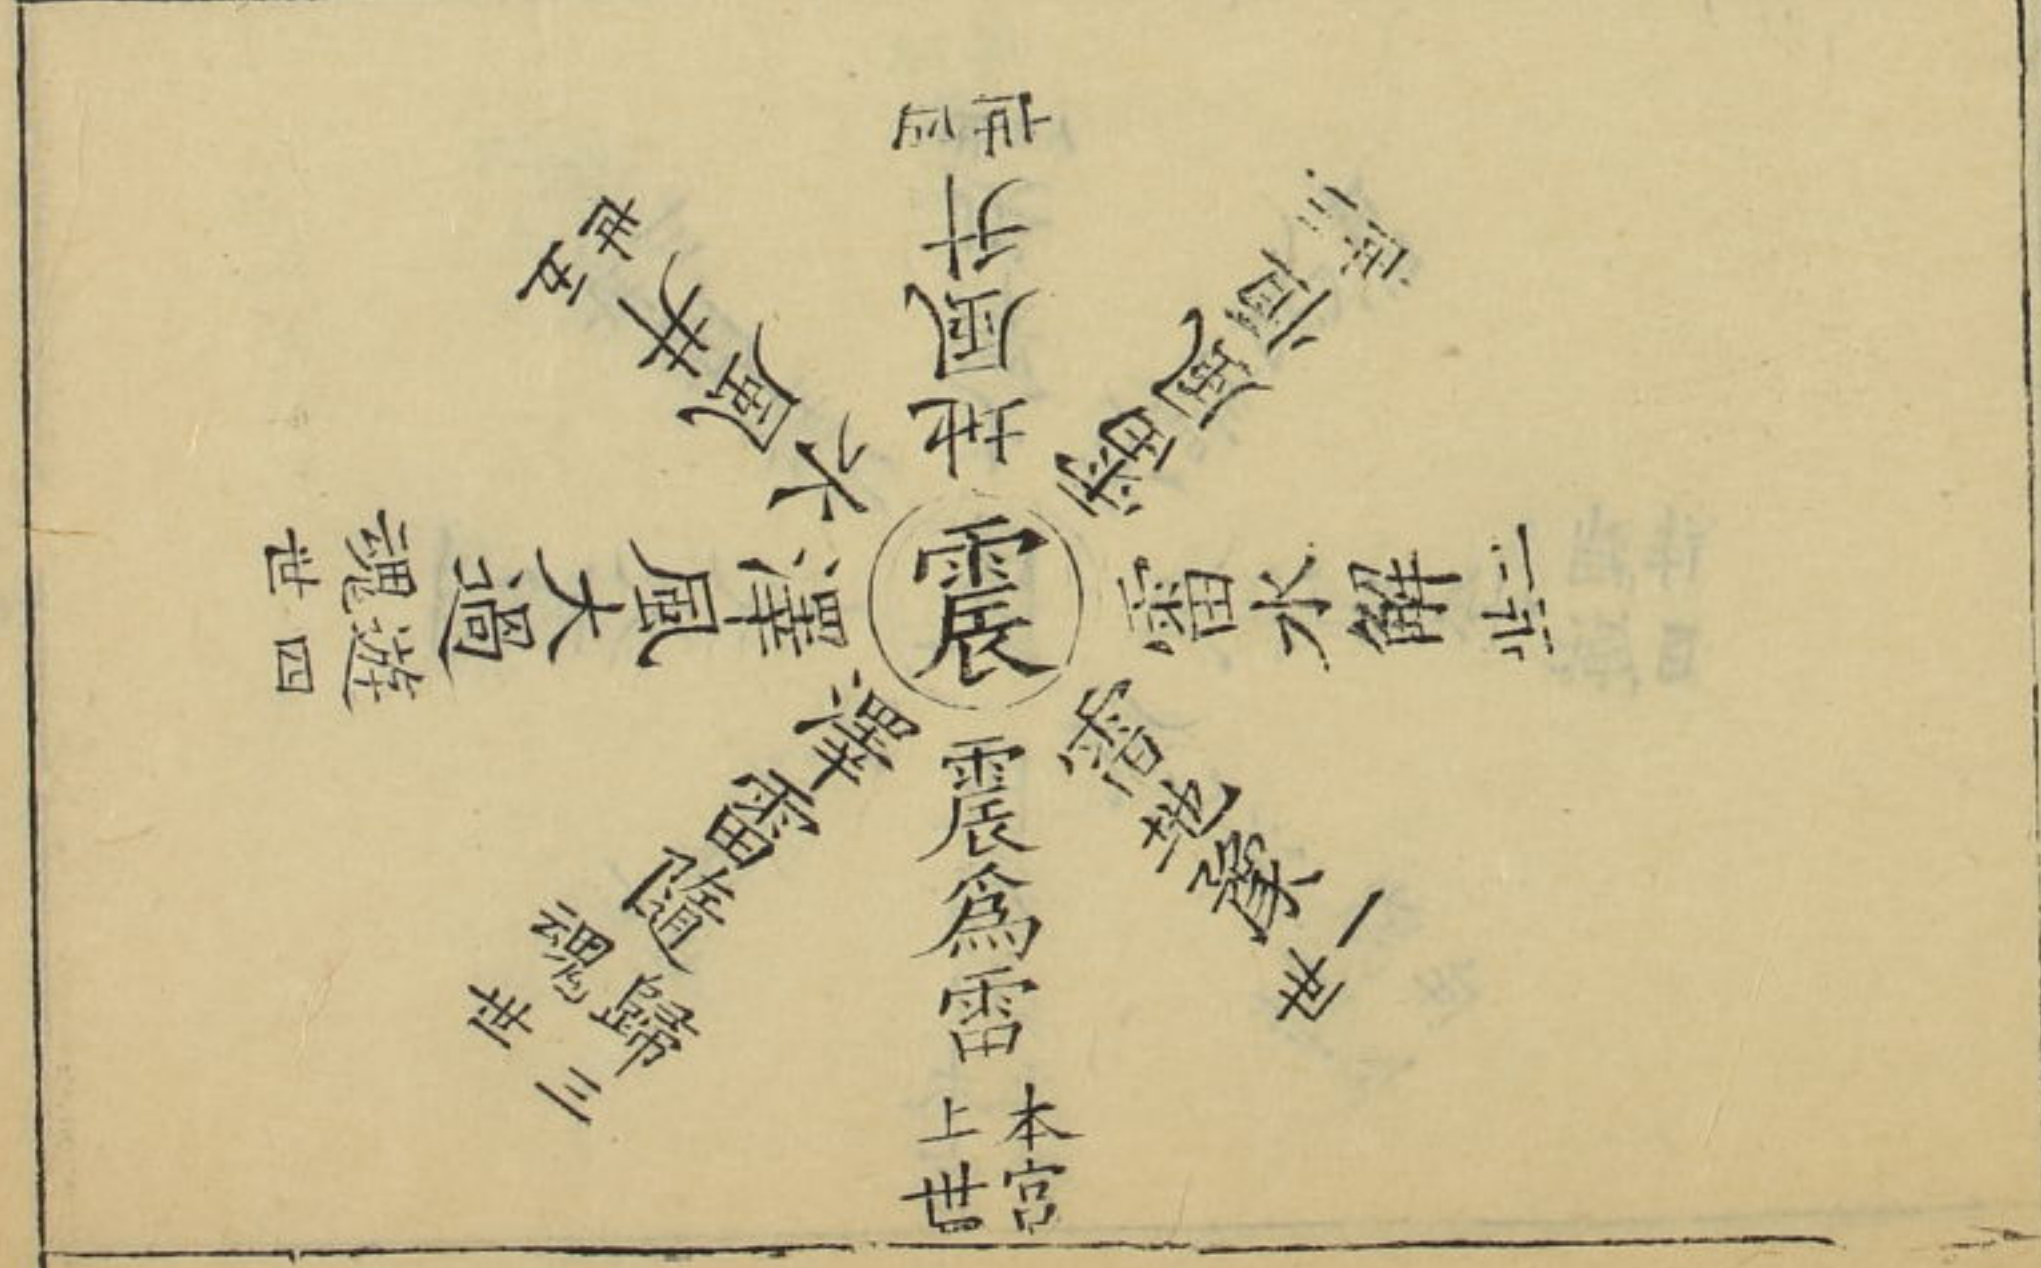 震
震爲雷
本宮
上世
雷地豫
一世
雷水解
二世
雷風恒
三世
地風升
四世
水風井
五世
澤風大過
遊魂
四世
澤雷隨
歸魂
三世